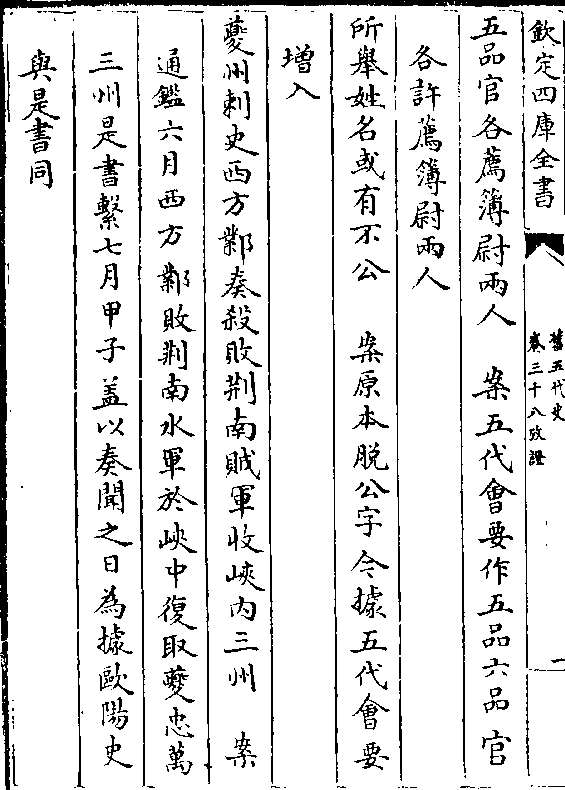 欽定四庫全書
舊五代史
卷三十八攷證
一
五品官各薦簿尉兩人　案五代會要作五品六品官
各許薦簿尉兩人
所舉姓名或有不公　案原本脫公字今據五代會要
增入
夔州刺史西方鄴奏殺敗荆南賊軍收峽內三州　案
通鑑六月西方鄴敗荆南水軍於峽中復取夔忠萬
三州是書繫七月甲子盖以奏聞之日為據歐陽史
與是書同